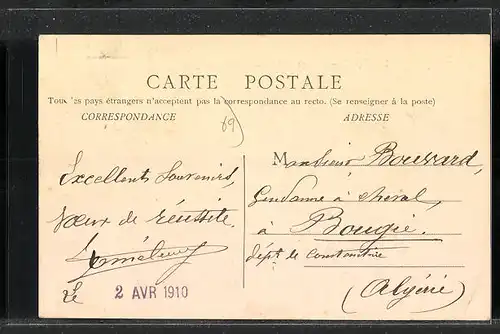 CARTE POSTALE
Tous les pays étrangers n'acceptent pas la correspondance au recto. (Se renseigner à la poste)
CORRESPONDANCE
ADRESSE
89
Excellents Souvenirs,
Vœux de réussite.
Le 2 AVR 1910
Monsieur Bouvard,
Gendarme à cheval,
à Bougie.
dépt de Constantine
(Algérie)